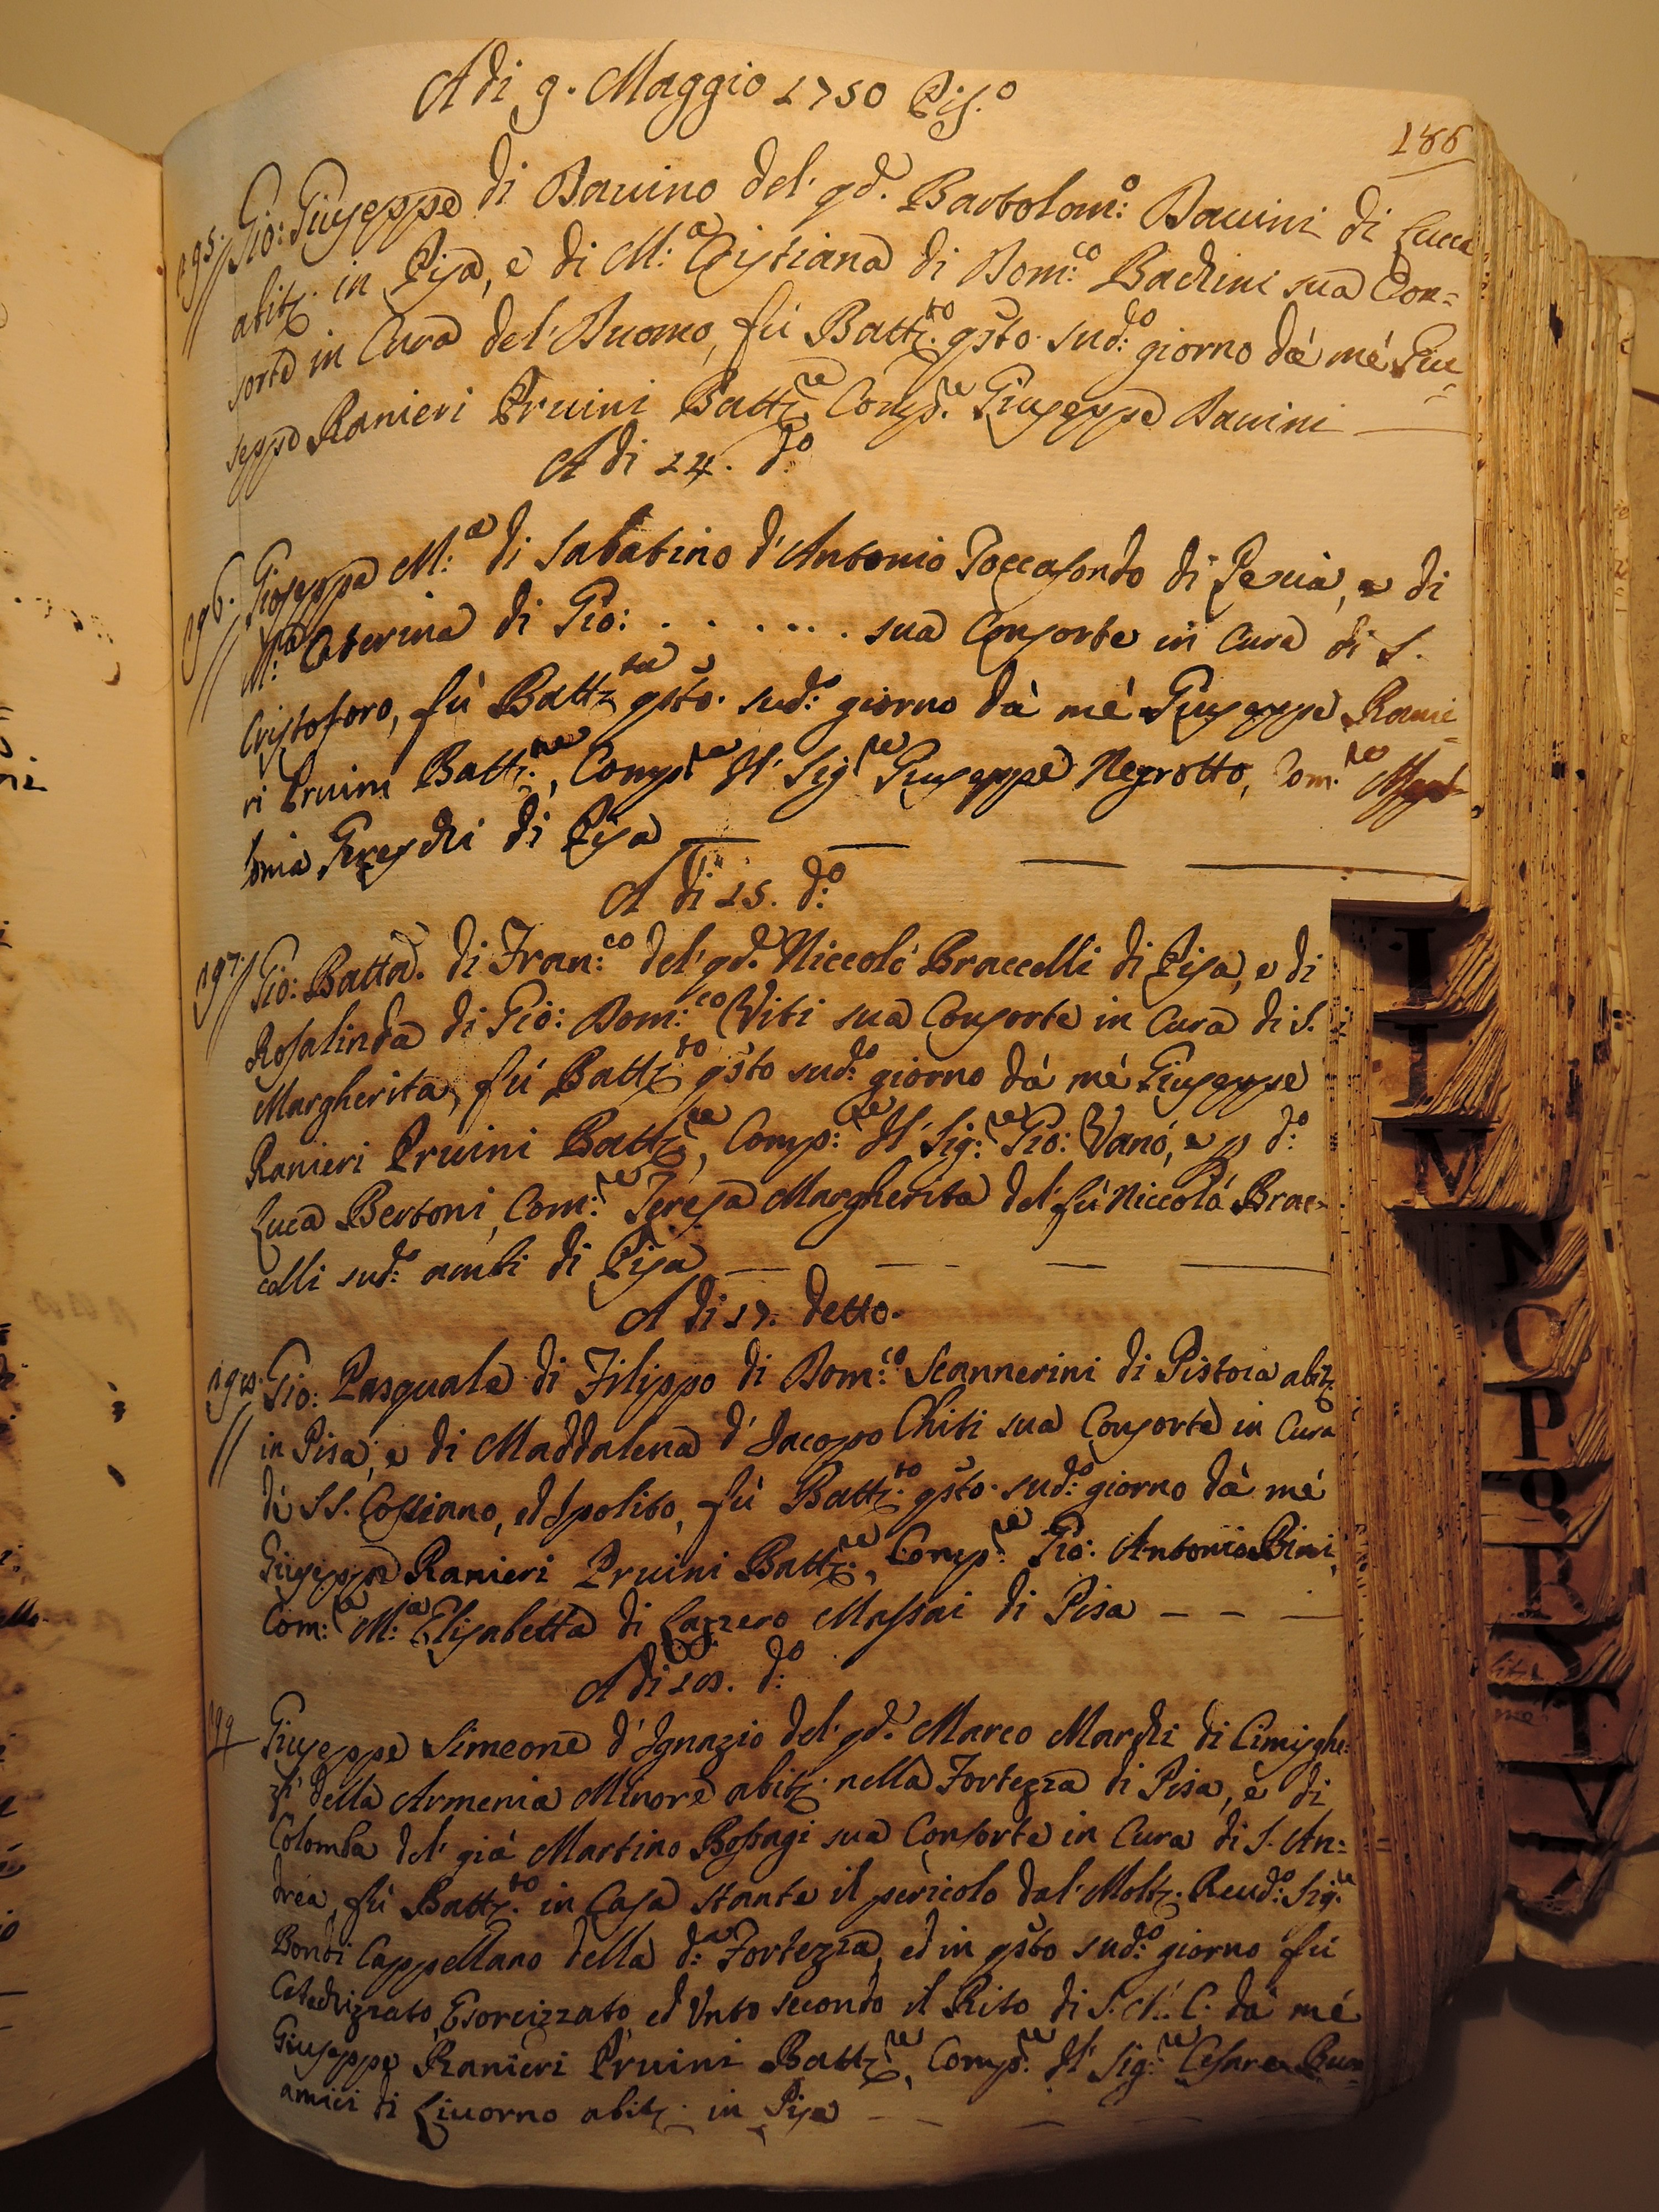 A di 9. Maggio 1750 Pis.o
186
295. Gio: Giuseppe di Davino del' qd. Bartolom:o Davini di Lucca
abitz. in Pisa, e di M:a Cristiana di Dom:co Bachini sua Con=
sorte in Cura del' Duomo, fú Battz.to qsto. sud:o giorno dá mé Giu=
seppe Ranieri Pruini Battz.re Comp.re Giuseppe Davini
A di 14. d:o
296. Gioseppa M:a di Sabatino d'Antonio Toccafondo di Pescia, e di
M:a Caterina di Gio: . . . . . . sua Consorte in Cura di S.
Cristoforo, fú Battz.ta qsto. sud:o giorno dà mé Giuseppe Ranie=
ri Pruini Battz.re, Comp.re Il' Sig.re Giuseppe Negrotto, Com:re
tonia Freschi di Pisa
A di 15. d:o
297. Gio: Batta. di Fran:co del' qd. Niccoló Braccelli di Pisa, e di
Rosalinda di Gio: Dom:co Viti sua Consorte in Cura di S.
Margherita, fú Battz.to qsto sud:o giorno dá mé Giuseppe
Ranieri Pruini Battz.re, Comp:re Il' Sig:re Gio: Vanó, e p d:o
Luca Bertoni, Com:re Teresa Margherita del' fú Niccolá Brac=
celli sud:o ambi di Pisa
A di 17. detto.
298. Gio: Pasquale di Filippo di Dom:co Scannerini di Pistoia abitz.
in Pisa, e di Maddalena d' Jacopo Chiti sua Consorte in Cura
di SS. Cassiano, ed Ipolito, fú Battz.to qsto. sud:o giorno dà mé
Giuseppe Ranieri Pruini Battz.re, Comp:re Gio: Antonio Bini
Com:re M:a Elisabetta di Lazzero Massai di Pisa
A di 18. d:o
299 Giuseppe Simeone d' Ignazio del' qd. Marco Marchi di
della Armenia Minore abitz. nella Fortezza di Pisa, e di
Colomba del' giá Martino sua Consorte in Cura di S. An=
drea, fú Battz.to in Casa stante il pericolo dal' Moltz. Reud:o Sig:re
Bondi Cappellano della d:a Fortezza, ed in qsto sud:o giorno fú
Catechizzato, Esorcizzato, ed Unto secondo il Rito di S. M. C. dá mé
Giuseppe Ranieri Pruini Battz.re, Comp:re Il' Sig:re Cesare Buon=
amici di Livorno abitz. in Pisa
I
L
M
N
O
P
Q
R
S
T
V